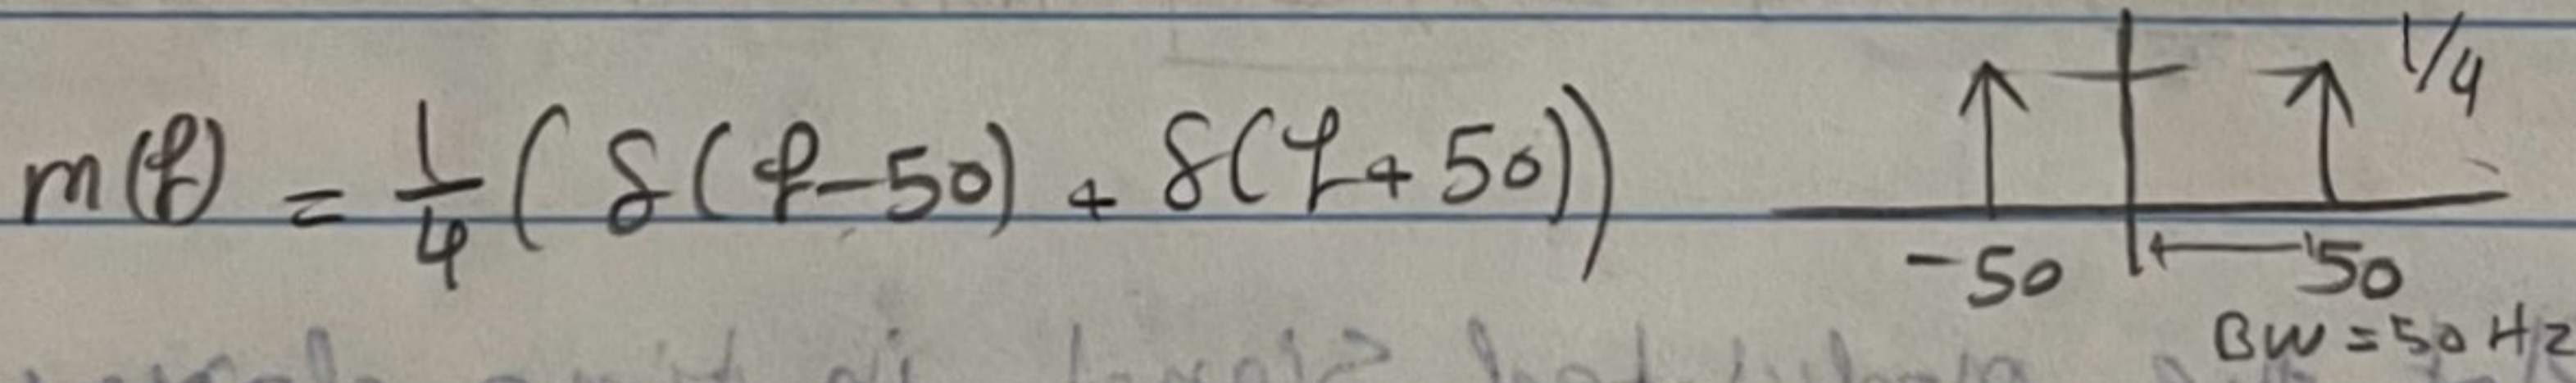 m(f) = 1/4 ( δ(f-50) + δ(f+50))
1/4
-50 50
BW = 50 Hz